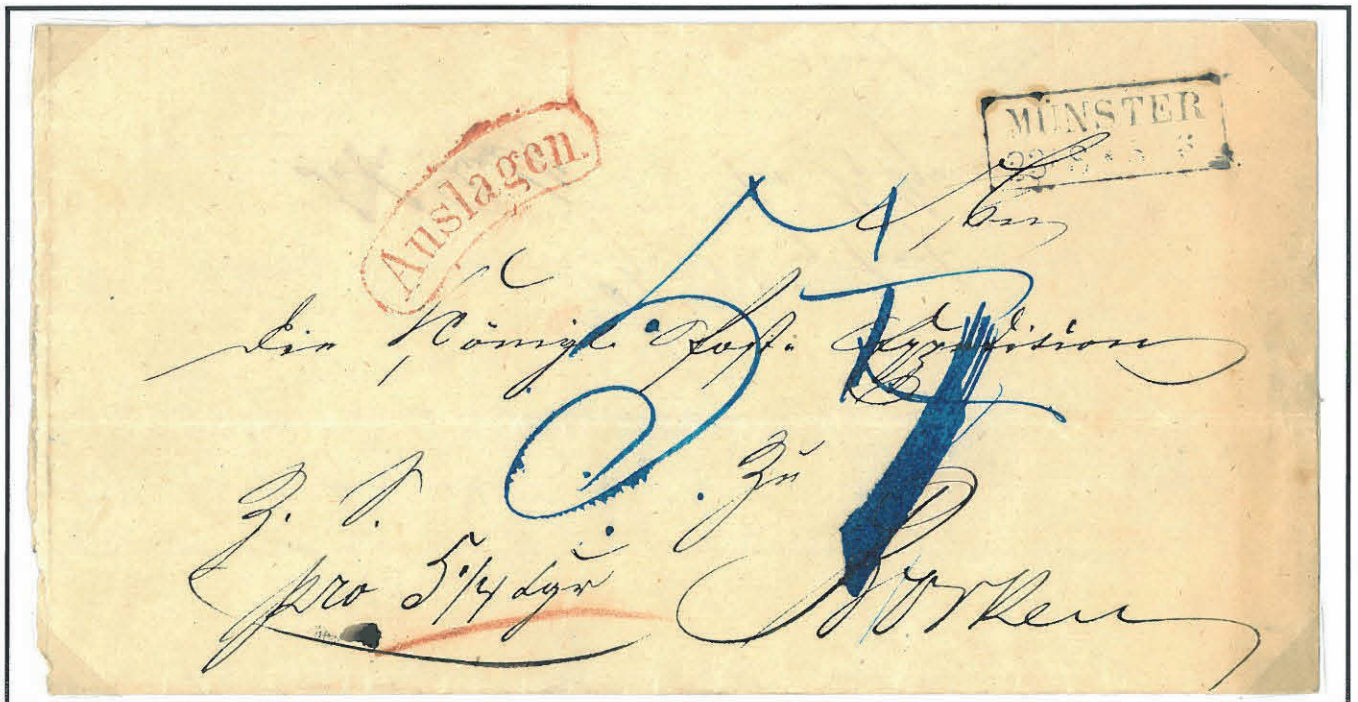 Auslagen.
MÜNSTER
An
die Königl. Post-Expedition
Z. S. zu
pro 5 1/4 Sgr Borken
5 1/4